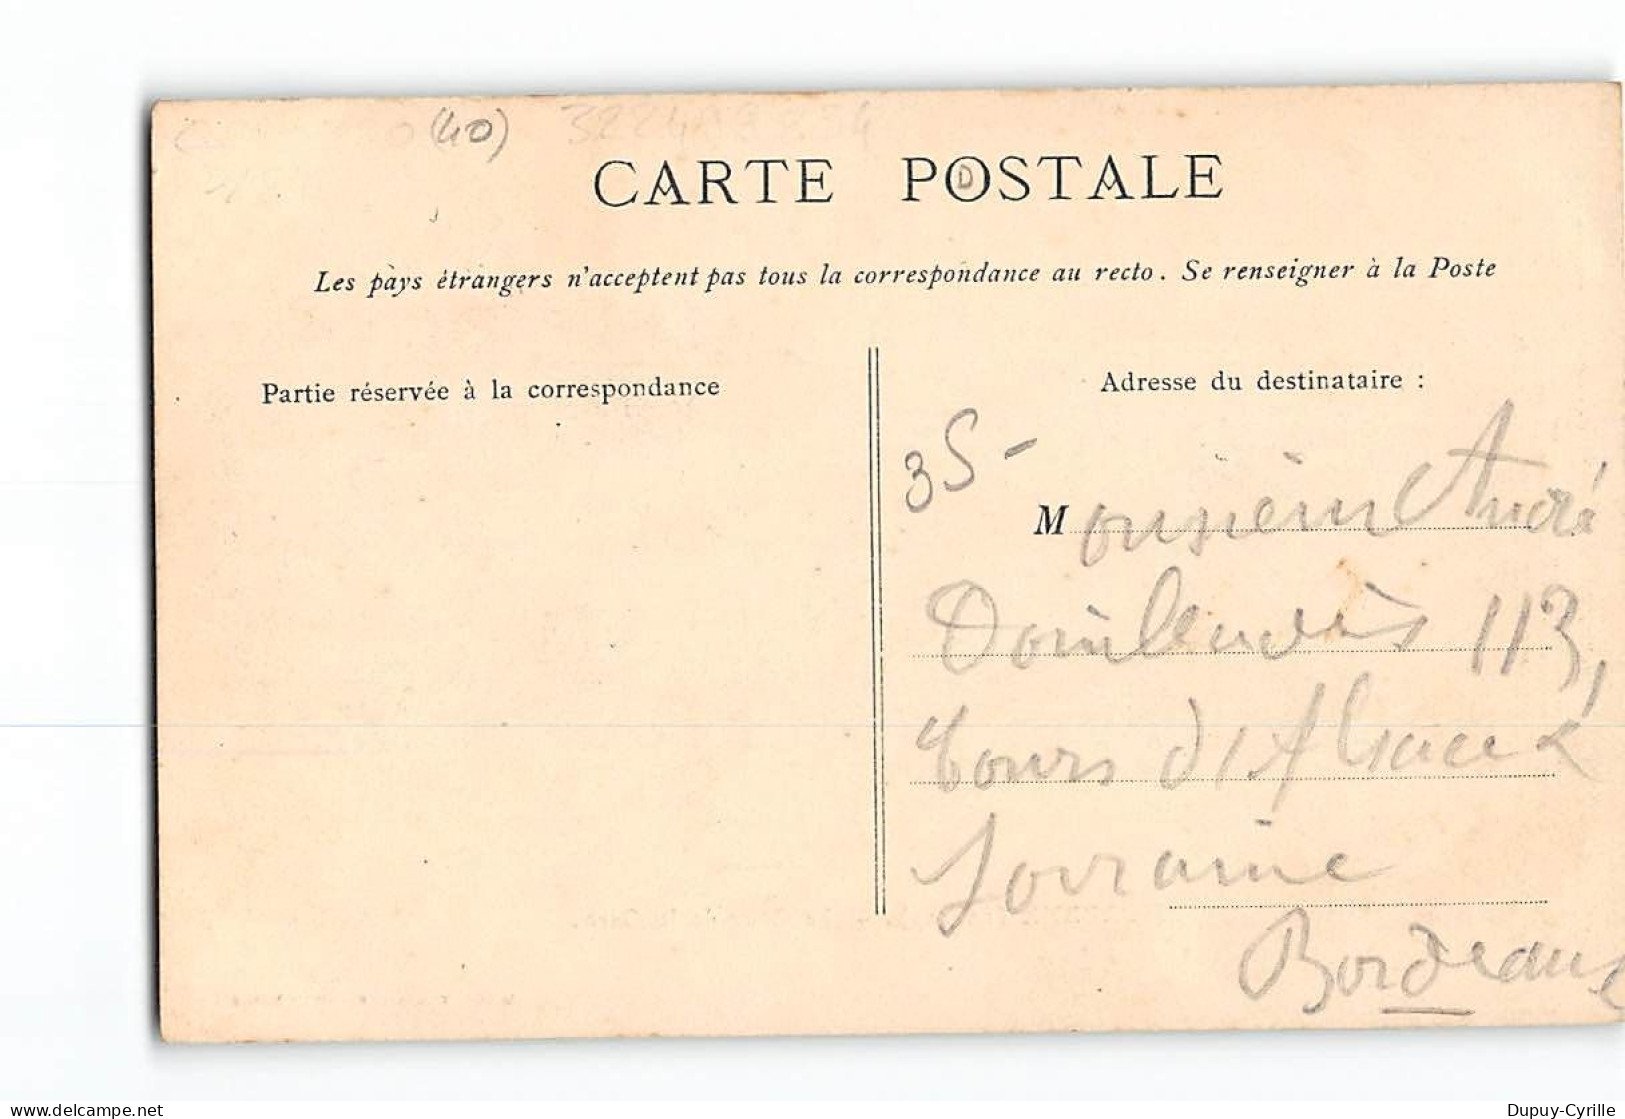 (40)
CARTE POSTALE
Les pays étrangers n'acceptent pas tous la correspondance au recto. Se renseigner à la Poste
Partie réservée à la correspondance
Adresse du destinataire :
35 -
Monsieur André
113,
Cours d'Alsace &
Lorraine
Bordeaux
delcampe.net
Dupuy-Cyrille